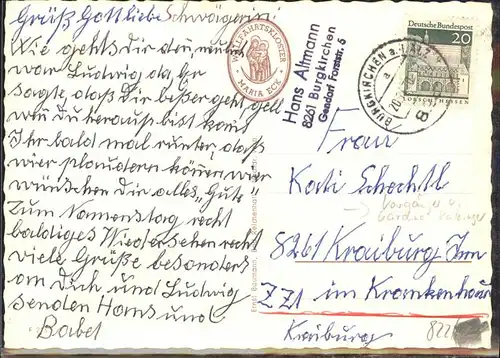 Grüß Gott liebe Schwägerin!
Wie gehts dir den, neulich
war Ludwig da, Er
sagte, daß Dir bißer geht gell
wen du heraus bist komt
Ihr bald mal runter, daß
wier plaudern können wier
wünschen dir alles Gute
Zum Namenstag recht
baldiges Wiedersehen recht
viele Grüße besonders
an Dich und Ludwig
senden Hans und
Babet
WALLFAHRTSKLOSTER
MARIA ECK
Hans Altmann
8261 Burgkirchen
Gendorf Forststr. 5
Deutsche Bundespost
20
LORSCH/HESSEN
BURGKIRCHEN a. d. ALZ
a
Frau
Kati Schechtl
8261 Kraiburg Inn
ZZt im Krankenhaus
Kraiburg
822